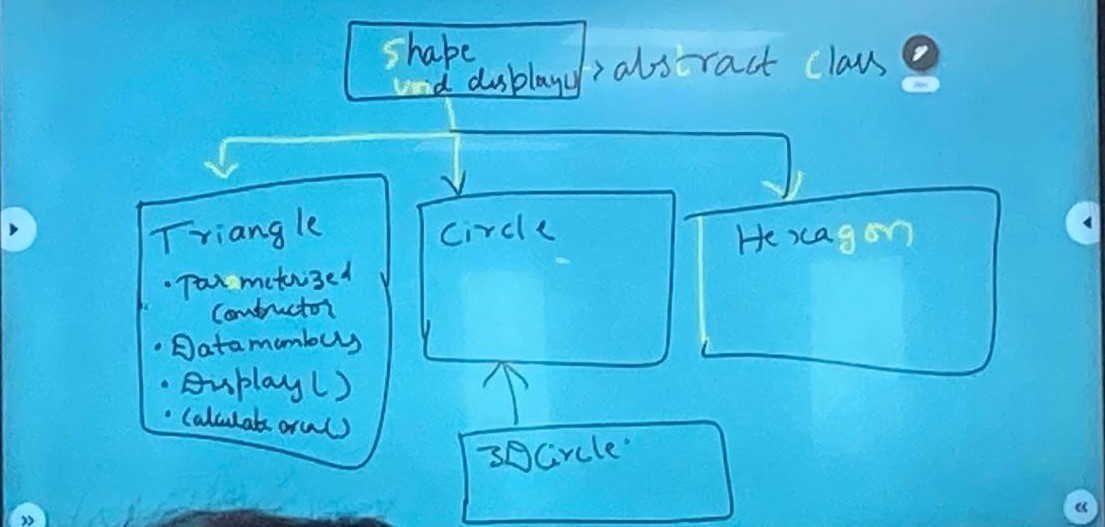 Shape
void display()
→ abstract class
Triangle
• Parameterized
Constructor
• Datamembers
• Display()
• Calculate area()
Circle
Hexagon
3D Circle